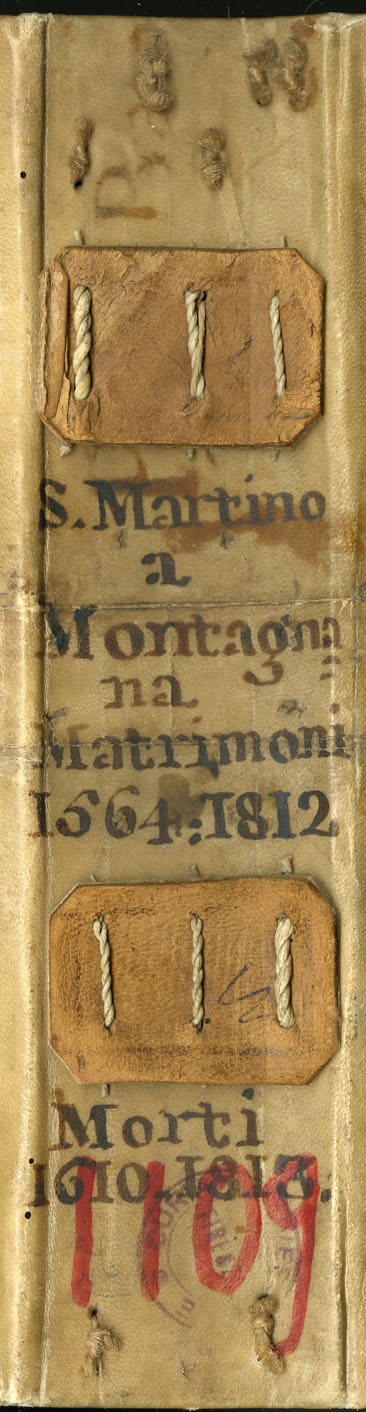 S. Martino
a
Montagna
na
Matrimoni
1564:1812
Morti
1610.1813.
1109